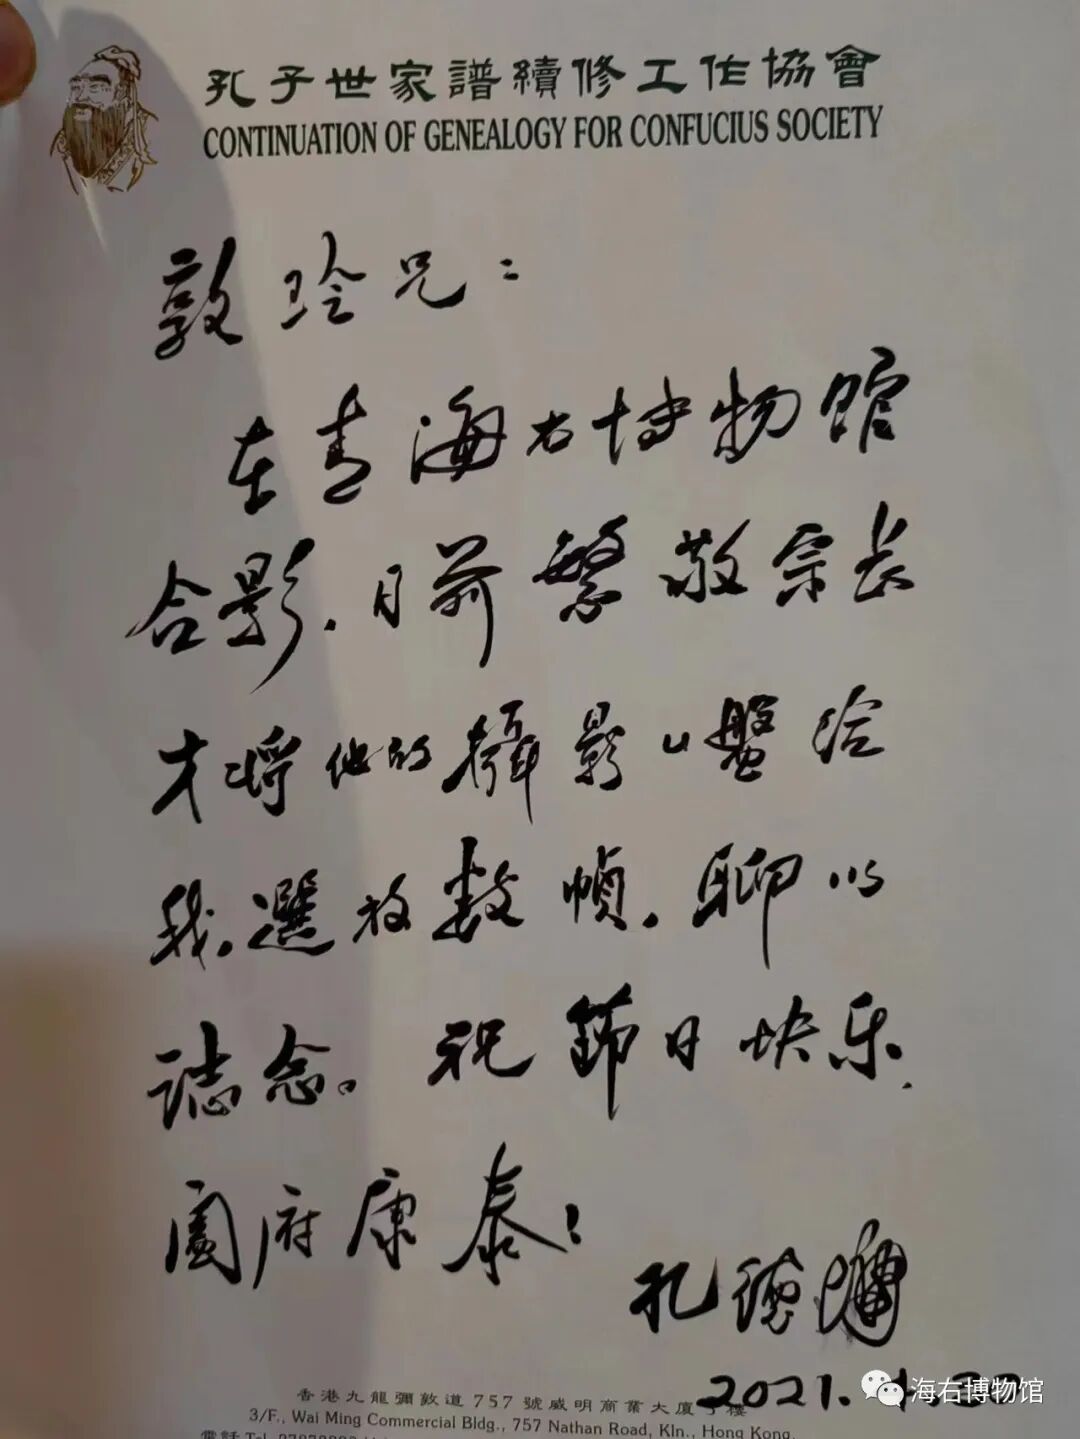 孔子世家譜續修工作協會
CONTINUATION OF GENEALOGY FOR CONFUCIUS SOCIETY
敦玲兄：
在青海右博物館
合影．日前繁敬宗長
才將他的攝影U盤给
我．選放数幀．聊以
誌念。祝節日快乐．
阖府康泰！
孔德墉
2021.
香港九龍彌敦道 757 號威明商業大廈 樓
3/F., Wai Ming Commercial Bldg., 757 Nathan Road, Kln., Hong Kong.
電話 Tel
海右博物馆